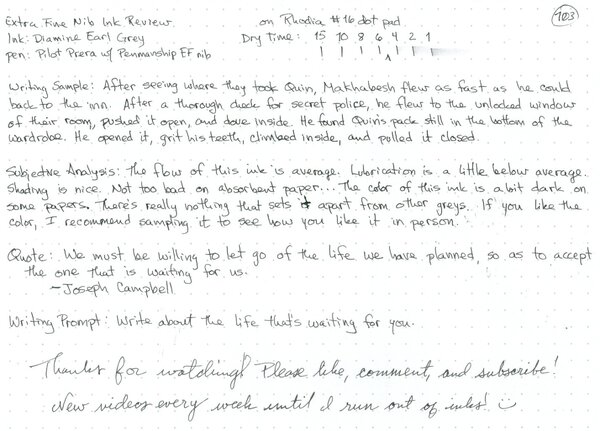 Extra Fine Nib Ink Review on Rhodia #16 dot pad 103
Ink: Diamine Earl Grey Dry Time: 15 10 8 6 4 2 1
pen: Pilot Prera w/ Penmanship EF nib
Writing Sample: After seeing where they took Quin, Makhabesh flew as fast as he could
back to the inn. After a thorough check for secret police, he flew to the unlocked window
of their room, pushed it open, and dove inside. He found Quin's pack still in the bottom of the
wardrobe. He opened it, grit his teeth, climbed inside, and pulled it closed.
Subjective Analysis: The flow of this ink is average. Lubrication is a little below average.
Shading is nice. Not too bad on absorbent paper... The color of this ink is a bit dark on
some papers. There's really nothing that sets it apart from other greys. If you like the
color, I recommend sampling it to see how you like it in person.
Quote: We must be willing to let go of the life we have planned, so as to accept
the one that is waiting for us.
~Joseph Campbell
Writing Prompt: Write about the life that's waiting for you.
Thanks for watching! Please like, comment, and subscribe!
New videos every week until I run out of inks!